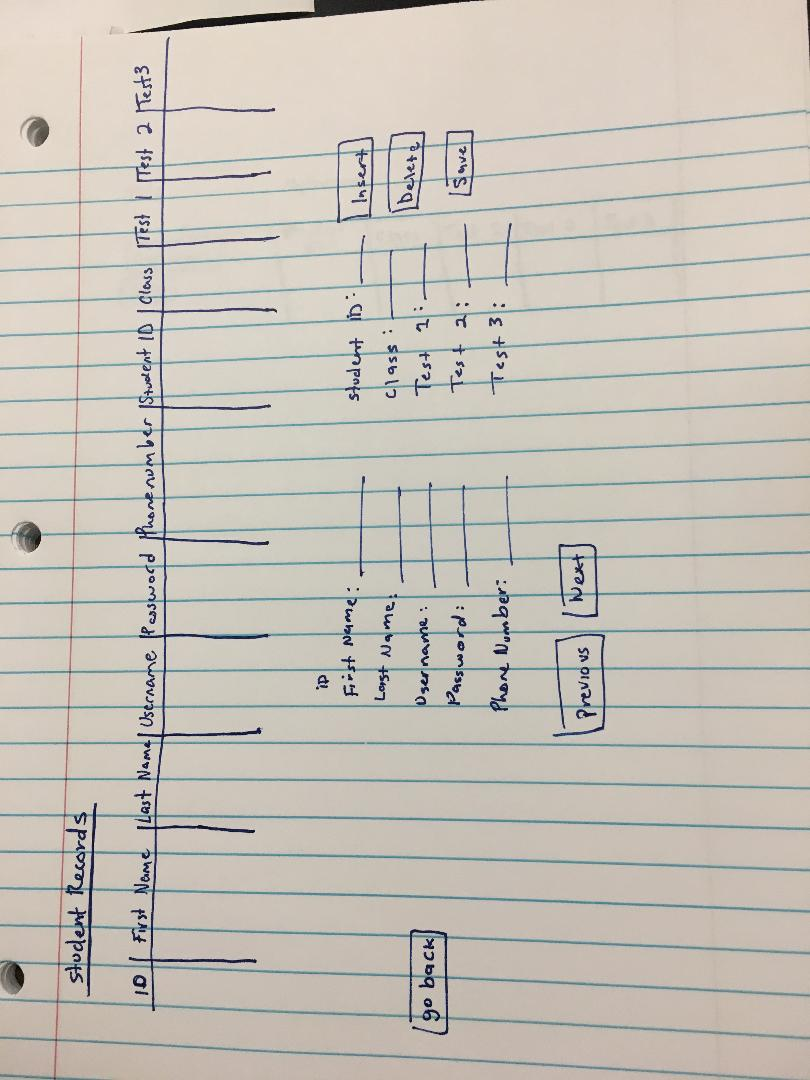 Student Records
ID | First Name | Last Name | Username | Password | Phonenumber | Student ID | Class | Test 1 | Test 2 | Test3
ID
First Name:
Last Name:
Username:
Password:
Phone Number:
Previous Next
student ID:
Class:
Test 1:
Test 2:
Test 3:
Insert
Delete
Save
go back